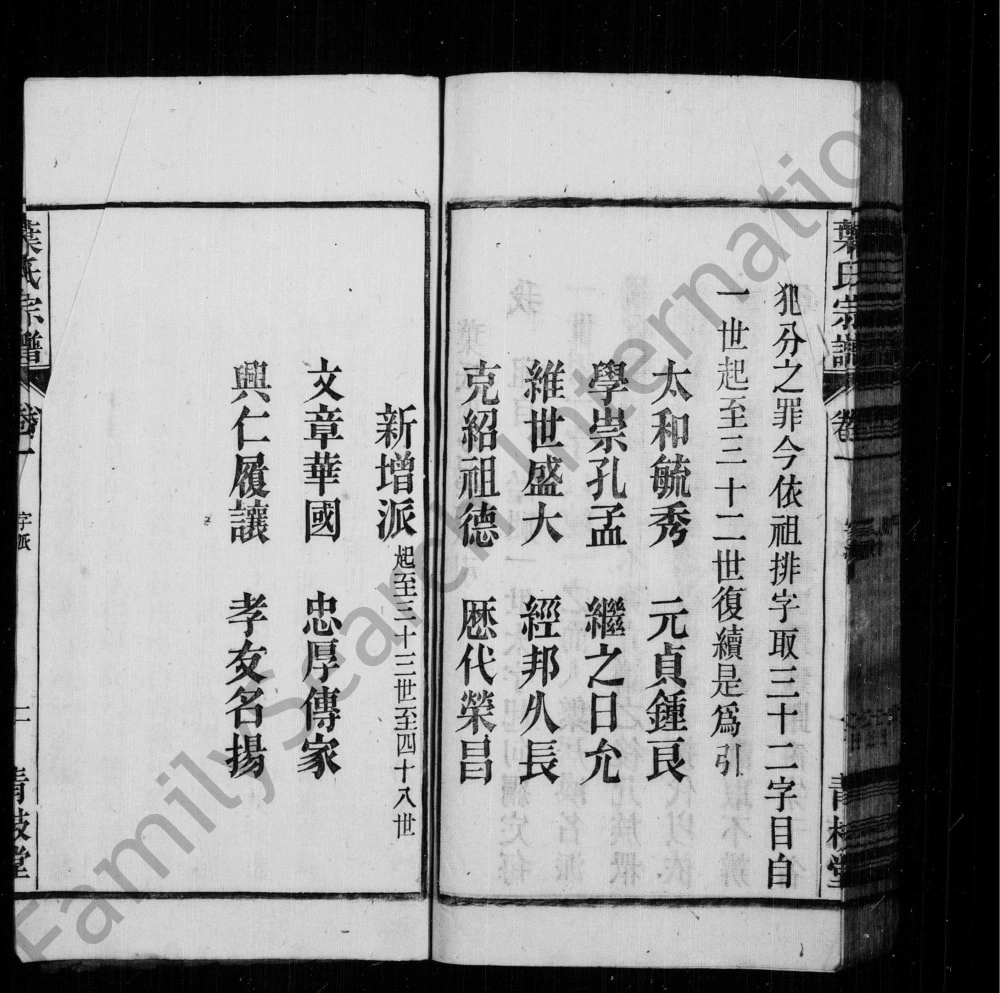 葉氏宗譜 卷一
犯分之罪今依祖排字取三十二字目自
一世起至三十二世復續是爲引
太和毓秀 元貞鍾良
學崇孔孟 繼之日允
維世盛大 經邦久長
克紹祖德 歷代榮昌
新增派起至三十三世至四十八世
文章華國 忠厚傳家
興仁履讓 孝友名揚
葉氏宗譜 卷一 字派 二 青枝堂
FamilySearch International